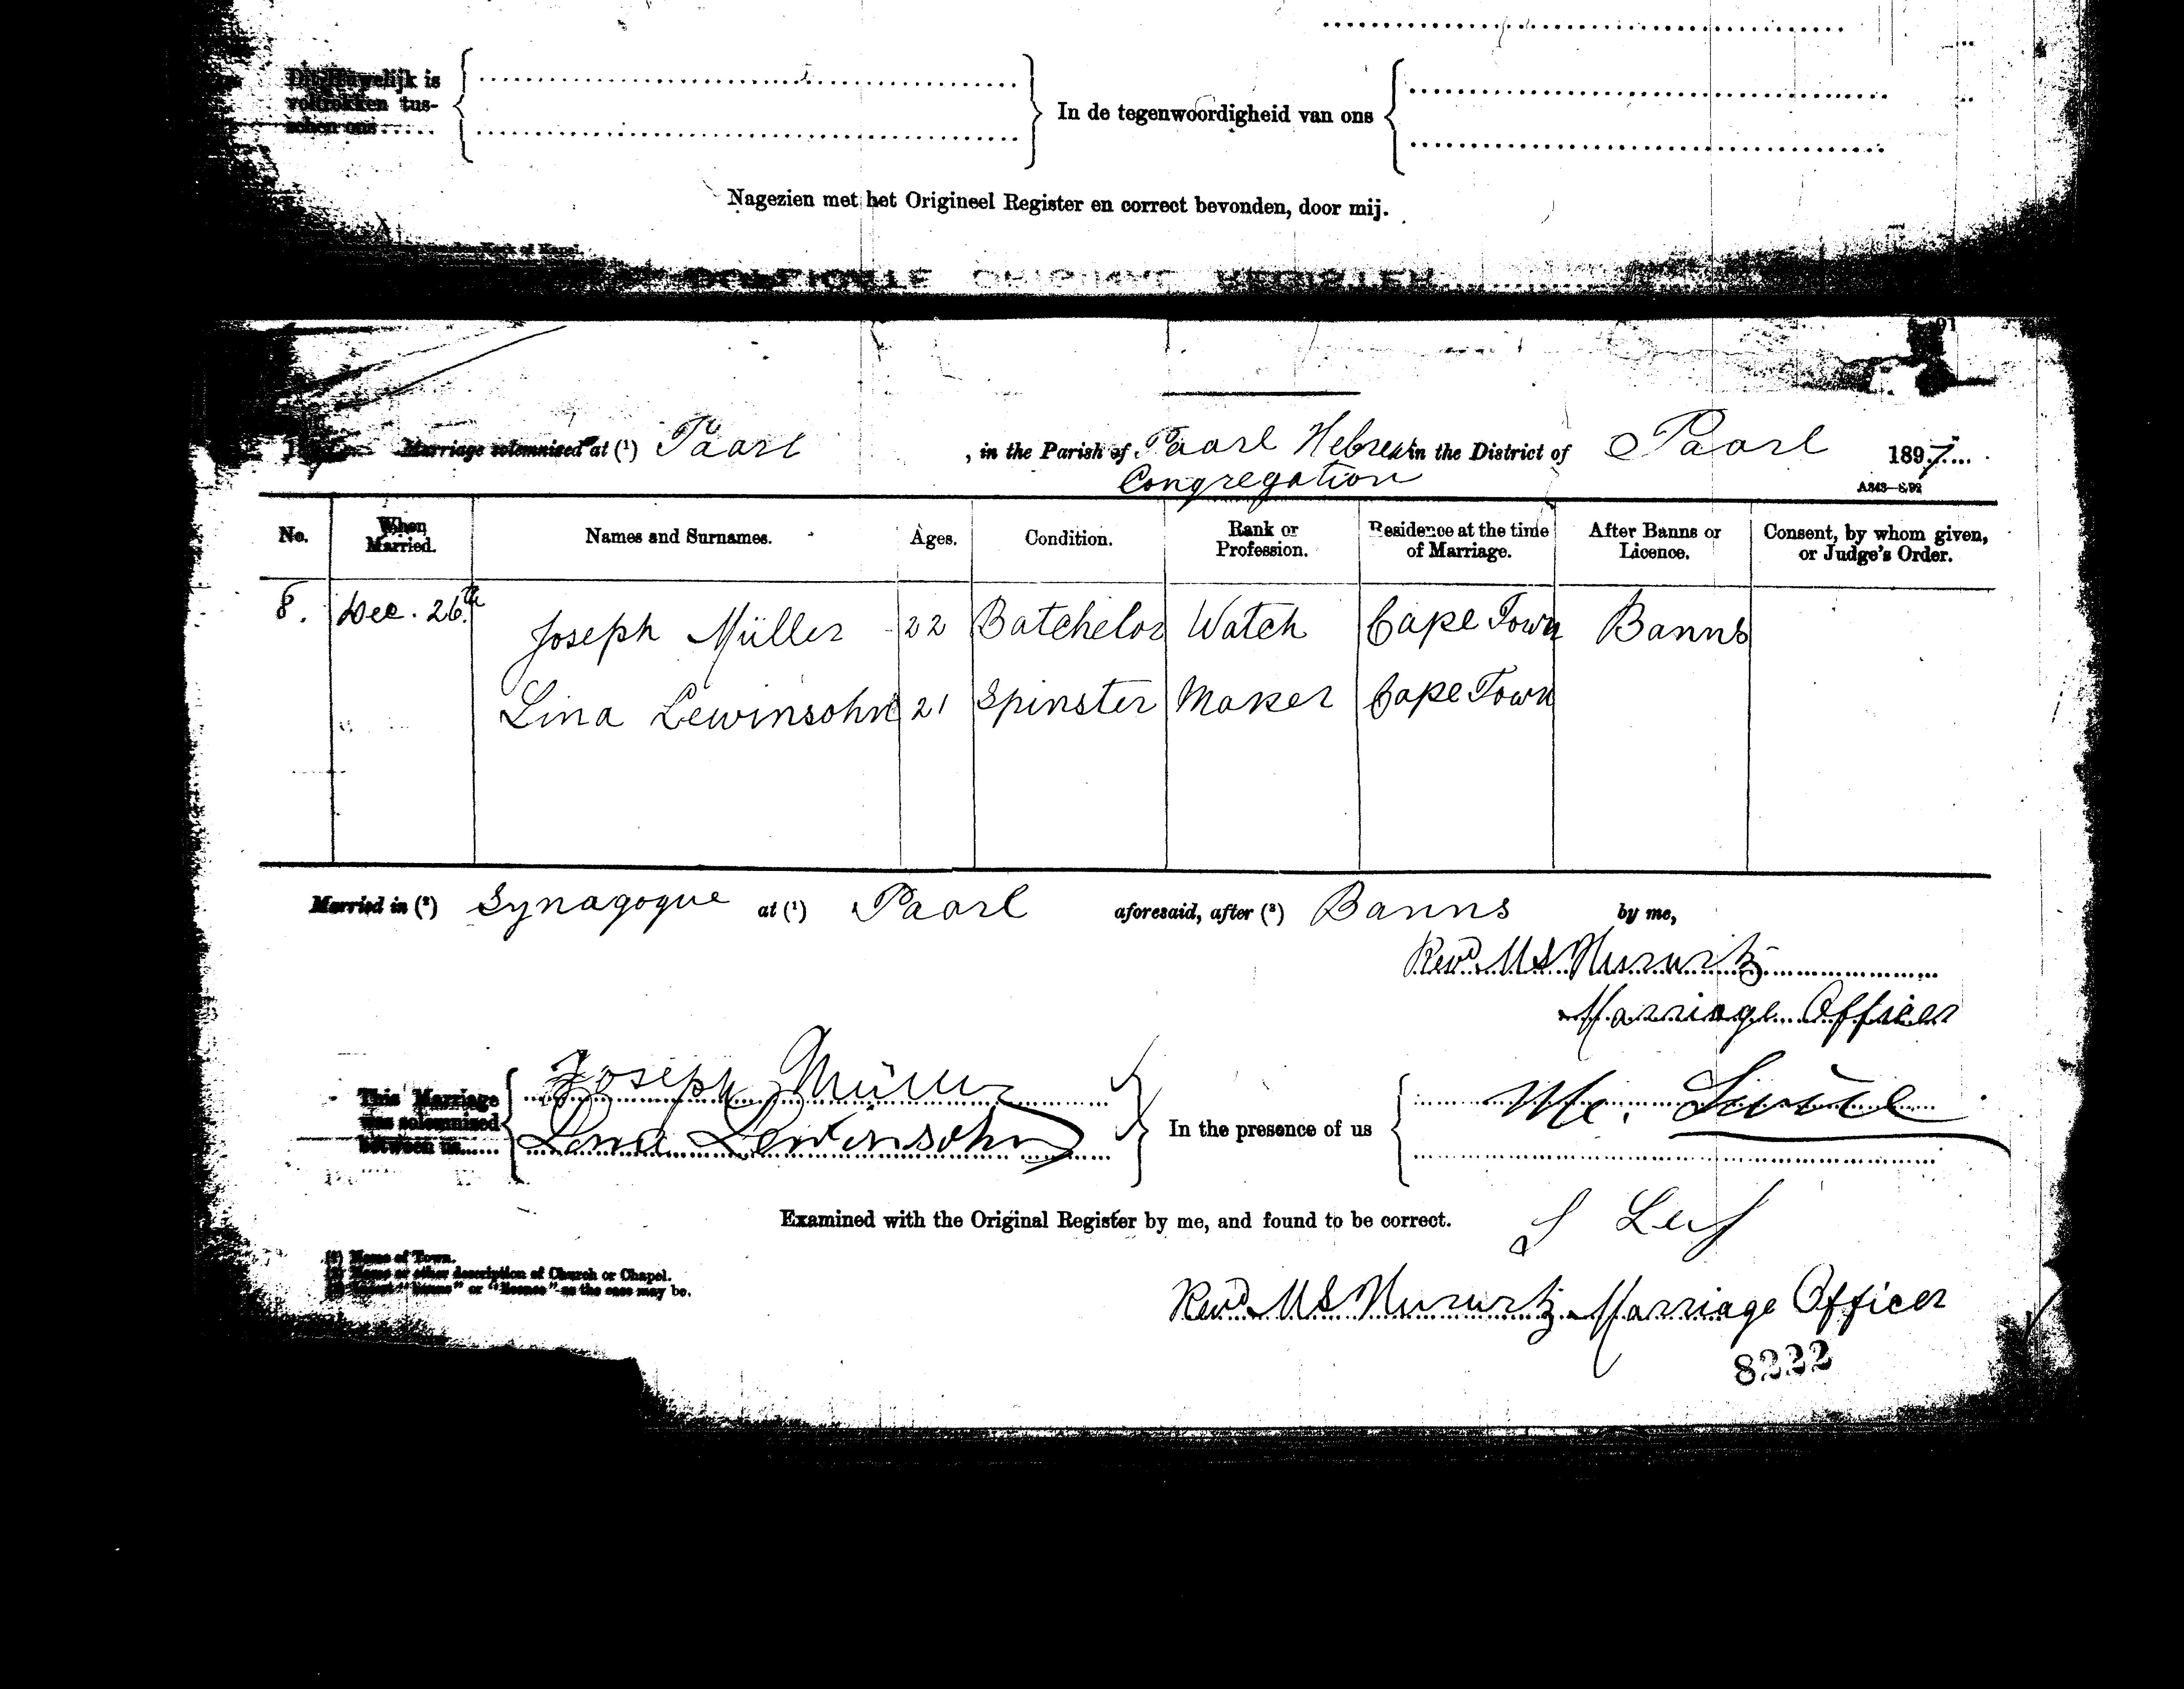 Dit Huwelijk is
voltrokken tus-
schen ons......
In de tegenwoordigheid van ons
Nagezien met het Origineel Register en correct bevonden, door mij.
Kerk of Kapel.
Marriage solemnized at (1) Paarl , in the Parish of Paarl Hebrew in the District of Paarl 1897
Congregation
A343—8,92
No. When Married. Names and Surnames. Ages. Condition. Rank or Profession. Residence at the time of Marriage. After Banns or Licence. Consent, by whom given, or Judge's Order.
8. Dec. 26th Joseph Müller 22 Batchelor Watch Cape Town Banns
Lina Lewinsohn 21 Spinster Maker Cape Town
Married in (2) Synagogue at (1) Paarl aforesaid, after (3) Banns by me,
Revd. M S Hurwitz
Marriage Officer
This Marriage
was solemnized
between us......
Joseph Müller
Lina Lewinsohn
In the presence of us
M.
S
Examined with the Original Register by me, and found to be correct.
(1) Name of Town.
(2) Name or other description of Church or Chapel.
(3) Insert "banns" or "licence" as the case may be.
Revd. M S Hurwitz Marriage Officer
8222